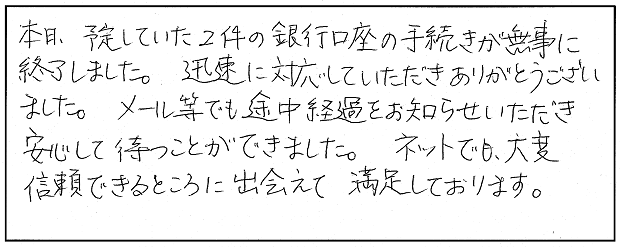 本日、予定していた2件の銀行口座の手続きが無事に
終了しました。 迅速に対応していただきありがとうござい
ました。 メール等でも途中経過をお知らせいただき
安心して待つことができました。 ネットでも、大変
信頼できるところに出会えて 満足しております。